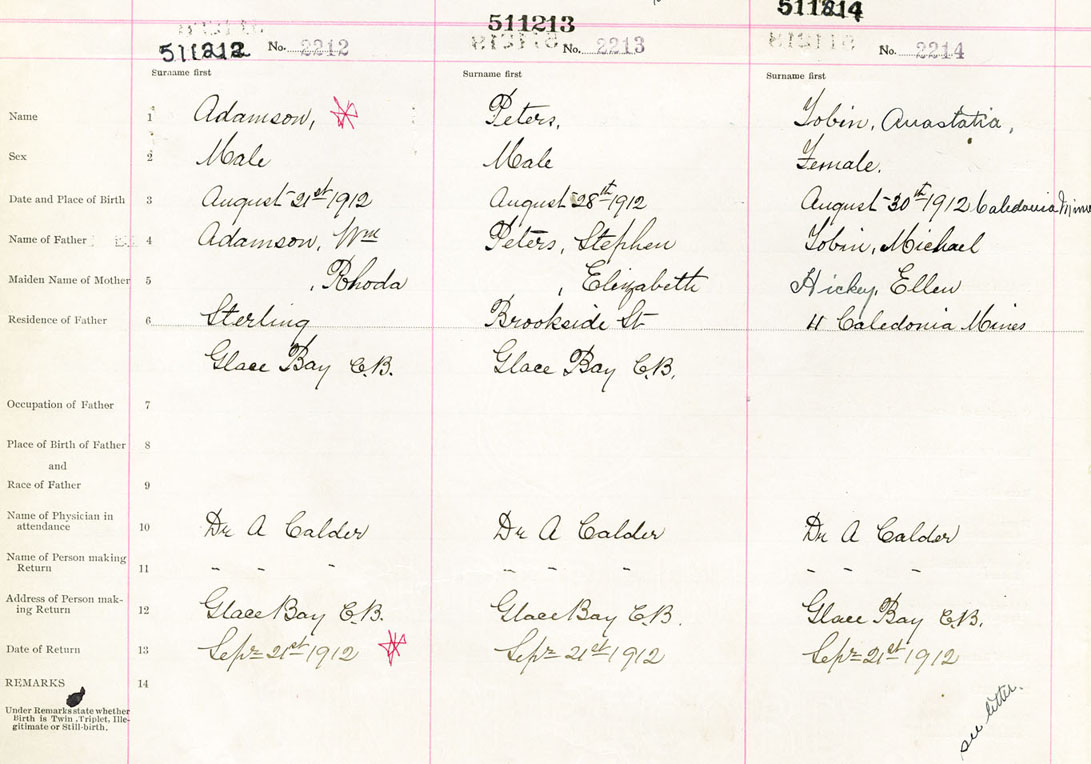 511213
511214
511212 No. 2212
No. 2213
No. 2214
Surname first
Surname first
Surname first
Name 1 Adamson, Peters, Tobin, Anastatia,
Sex 2 Male Male Female.
Date and Place of Birth 3 August 21st 1912 August 28th 1912 August 30th 1912 Caledonia Mines
Name of Father 4 Adamson, Wm Peters, Stephen Tobin, Michael
Maiden Name of Mother 5 , Rhoda , Elizabeth Hickey, Ellen
Residence of Father 6 Sterling Brookside St 11 Caledonia Mines
Glace Bay C.B. Glace Bay C.B.
Occupation of Father 7
Place of Birth of Father 8
and
Race of Father 9
Name of Physician in
attendance 10 Dr A Calder Dr A Calder Dr A Calder
Name of Person making
Return 11 " " " " " " " " "
Address of Person mak-
ing Return 12 Glace Bay C.B. Glace Bay C.B. Glace Bay C.B.
Date of Return 13 Sepr 21st 1912 Sepr 21st 1912 Sepr 21st 1912
REMARKS 14
Under Remarks state whether
Birth is Twin, Triplet, Ille-
gitimate or Still-birth.
see letter.